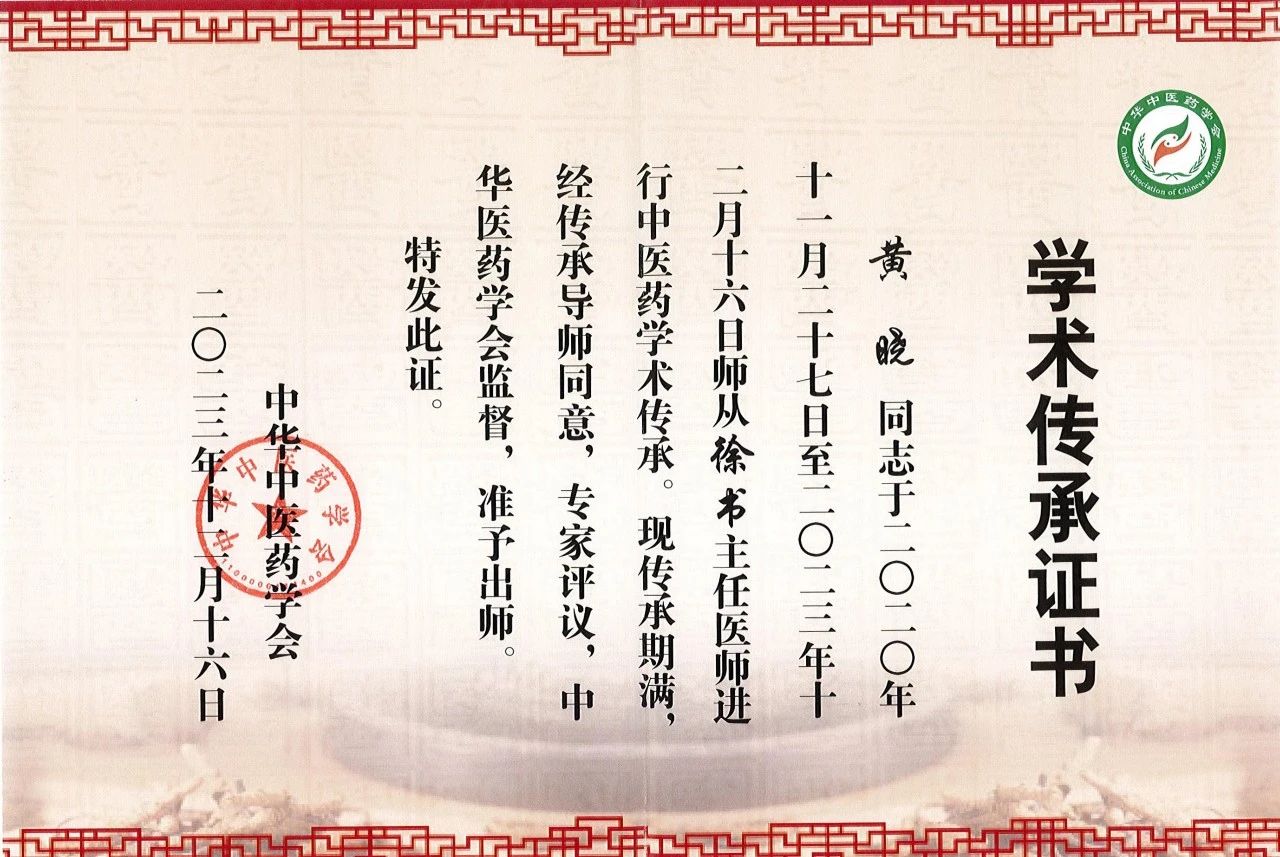 中华中医药学会
China Association of Chinese Medicine
学术传承证书
黄晓同志于二〇二〇年
十一月二十七日至二〇二三年十
二月十六日师从徐书主任医师进
行中医药学术传承。现传承期满，
经传承导师同意，专家评议，中
华医药学会监督，准予出师。
特发此证。
中华中医药学会
二〇二三年十二月十六日
中华中医药学会